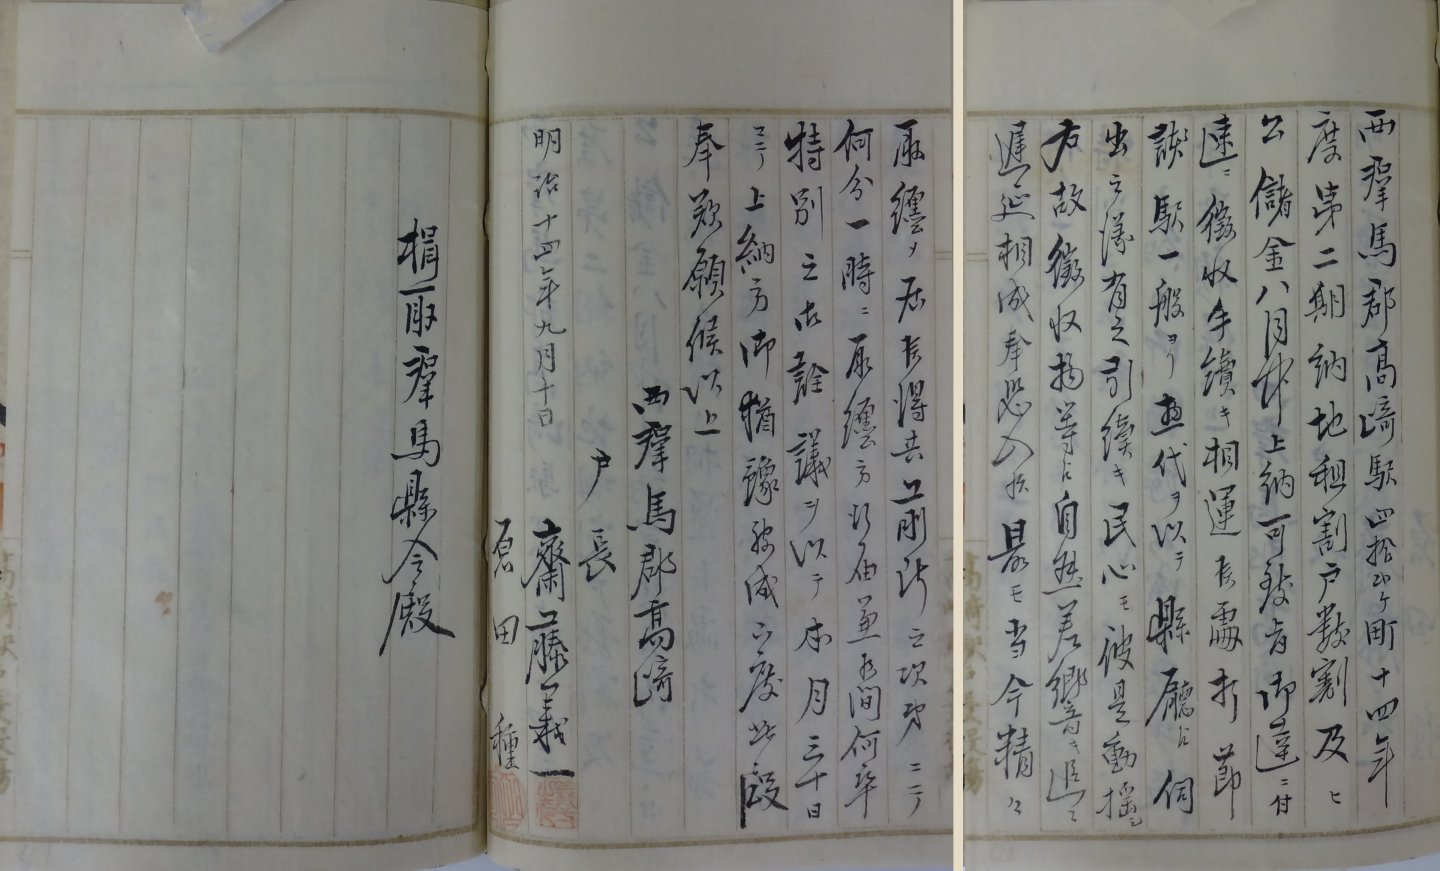 西群馬郡高崎駅四拾弐ヶ町十四年
度第二期納地租割戸数割及ヒ
公儲金八月中上納可致旨御達ニ付
速ニ徴収手続キ相運ヒ居ル處折節
該駅一般ヨリ惣代ヲ以テ縣廳ニ伺
出之儀有之引続キ民心モ彼是動揺シ
方故徴収物等ニ自然差響キ追々
遅延相成奉恐入候最モ当今精々
取纏ヲ居候得共旦刻許之次第ニ而
何分一時ニ取纏方行届兼候間何卒
特別之御詮議ヲ以テ本月三十日
マテ上納方御猶豫被成下度此段
奉歎願候以上
西群馬郡高崎
戸長
明治十四年九月十日
齋藤義一
原田種
楫取群馬縣令殿